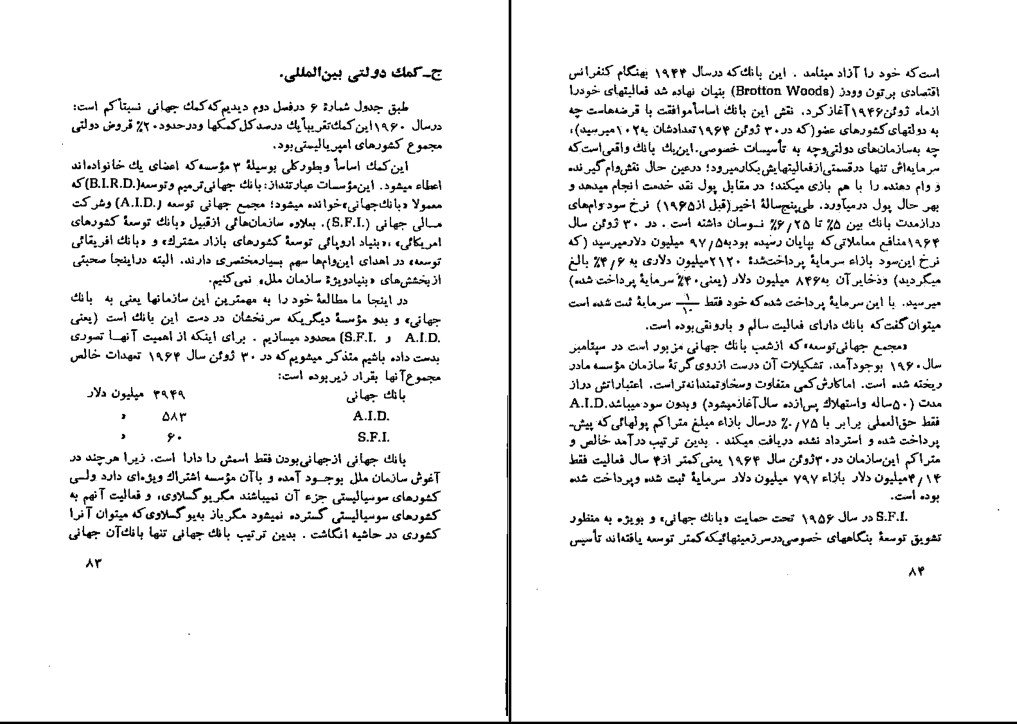 ج_کمك دولتی بین‌المللی.
طبق جدول شمارهٔ ۶ درفصل دوم دیدیم که کمك جهانی نسبتاً کم است:
درسال ۱۹۶۰ این کمك تقریباً یك درصد کل کمکها و درحدود ۲۰٪ قروض دولتی
مجموع کشورهای امپریالیستی بود.
این کمك اساساً وبطورکلی بوسیلهٔ ۳ مؤسسه که اعضای یك خانواده‌اند
اعطاء میشود. این مؤسسات عبارتنداز: بانك جهانی ترمیم و توسعه (B.I.R.D.) که
معمولا «بانك جهانی» خوانده میشود؛ مجمع جهانی توسعه (A.I.D.) وشرکت
مــالی جهانی (S.F.I.). بعلاوه سازمان‌هائی ازقبیل «بانك توسعهٔ کشورهای
امریکائی»، «بنیاد اروپائی توسعهٔ کشورهای بازار مشترك» و «بانك افریقائی
توسعه» در اهدای این وام‌ها سهم بسیار مختصری دارند. البته دراینجا صحبتی
از بخشش‌های «بنیاد ویژهٔ سازمان ملل» نمی‌کنیم.
در اینجا ما مطالعهٔ خود را به مهمترین این سازمانها یعنی به «بانك
جهانی» و بدو مؤسسهٔ دیگریکه سرنخشان در دست این بانك است (یعنی
A.I.D. و S.F.I.) محدود میسازیم . برای اینکه از اهمیت آنهــا تصوری
بدست داده باشیم متذکر میشویم که در ۳۰ ژوئن سال ۱۹۶۴ تعهدات خالص
مجموع آنها بقرار زیر بوده است:
بانك جهانی ۳۹۴۹ میلیون دلار
A.I.D. ۵۸۳ »
S.F.I. ۶۰ »
بانك جهانی ازجهانی بودن فقط اسمش را دارا است. زیرا هرچند در
آغوش سازمان ملل بوجــود آمده و با آن مؤسسه اشتراك ویژه‌ای دارد ولــی
کشورهای سوسیالیستی جزء آن نمیباشند مگر یوگسلاوی، و فعالیت آنهم به
کشورهای سوسیالیستی گسترده نمیشود مگر باز به یوگسلاوی که میتوان آنرا
کشوری در حاشیه انگاشت . بدین ترتیب بانك جهانی تنها بانك آن جهانی
۸۳
است که خود را آزاد مینامد . این بانك که درسال ۱۹۴۴ بهنگام کنفرانس
اقتصادی برتون وودز (Brotton Woods) بنیان نهاده شد فعالیتهای خودرا
ازماه ژوئن ۱۹۴۶ آغاز کرد. نقش این بانك اساساً موافقت با قرضه‌هاست چه
به دولتهای کشورهای عضو (که در ۳۰ ژوئن ۱۹۶۴ تعدادشان به ۱۰۲ میرسید)،
چه به‌سازمان‌های دولتی وچه به تأسیسات خصوصی. این یك بانك واقعی است که
سرمایه‌اش تنها درقسمتی از فعالیتهایش بکار میرود؛ درعین حال نقش وام گیرنده
و وام دهنده را با هم بازی میکند؛ در مقابل پول نقد خدمت انجام میدهد و
بهر حال پول درمیاورد. طی پنج سالهٔ اخیر (قبل از ۱۹۶۵) نرخ سود وام‌های
درازمدت بانك بین ۵٪ تا ۶/۲۵٪ نــوسان داشته است . در ۳۰ ژوئن سال
۱۹۶۴ منافع معاملاتی که بپایان رسیده بود به ۹۷/۵ میلیون دلار میرسید (که
نرخ این سود بازاء سرمایهٔ پرداخت شدهٔ ۲۱۲۰ میلیون دلاری به ۴/۶٪ بالغ
میگردید) وذخایر آن به ۸۴۶ میلیون دلار (یعنی ۴۰٪ سرمایهٔ پرداخت شده)
میرسید. با این سرمایهٔ پرداخت شده که خود فقط ۱/۱۰ سرمایهٔ ثبت شده است
میتوان گفت که بانك دارای فعالیت سالم و بارونقی بوده است.
«مجمع جهانی توسعه» که ازشعب بانك جهانی مزبور است در سپتامبر
سال ۱۹۶۰ بوجود آمد. تشکیلات آن درست ازروی گرتهٔ سازمان مؤسسه مادر
ریخته شده است. اما کارش کمی متفاوت وسخاوتمندانه‌تر است. اعتباراتش دراز
مدت (۵۰ ساله واستهلاك پس ازده سال آغاز میشود) وبدون سود میباشد. A.I.D.
فقط حق‌العملی برابر با ۰/۷۵٪ درسال بازاء مبلغ متراکم پولهائی که پیش‌ـ
پرداخت شده و استرداد نشده دریافت میکند . بدین ترتیب درآمد خالص و
متراکم این سازمان در ۳۰ ژوئن سال ۱۹۶۴ یعنی کمتر از ۴ سال فعالیت فقط
۴/۱۴ میلیون دلار بازاء ۷۹۷ میلیون دلار سرمایهٔ ثبت شده وپرداخت شده
بوده است.
S.F.I. در سال ۱۹۵۶ تحت حمایت «بانك جهانی» و بویژه به منظور
تشویق توسعهٔ بنگاههای خصوصی درسرزمینهائیکه کمتر توسعه یافته‌اند تأسیس
۸۴